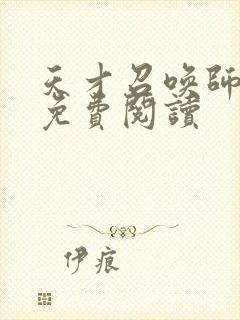 天才召喚師
免費閱讀
伊痕